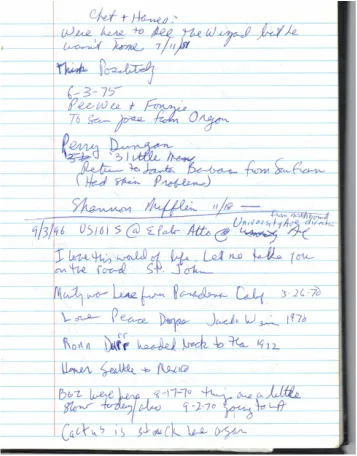 Chet + Hanes:
We're here to see the Wizard but he
wasn't home 7/11/81
Think Positively
6-3-75
PeeWee + Fonzie
To San Jose from Oregon
Perry Dungan
3 little
Return to Santa Barbara from San Fran
(Had Skin Problems)
Shannon Mufflin 11/18 —
9/3/96 US101 S @ E Palo Alto @ University Ave
I love this world of life. Let me take you
on the road St. John
Marty was here from Pasadena Calif 3-26-70
Love Peace Dope Jack 1970
Ronn Duff headed back to the 1932
Homer Seattle to Mexico
Boz were here 8-17-70 things are a little
slow today/also 9-2-70 going to LA
Cactus is stuck here again